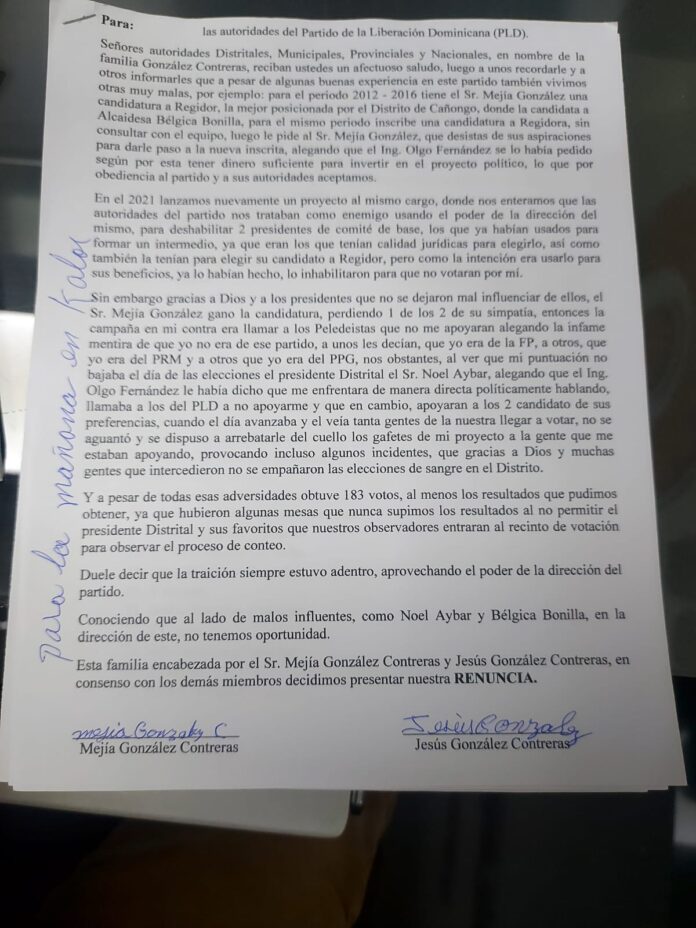 Para:
las autoridades del Partido de la Liberación Dominicana (PLD).
Señores autoridades Distritales, Municipales, Provinciales y Nacionales, en nombre de la
familia González Contreras, reciban ustedes un afectuoso saludo, luego a unos recordarle y a
otros informarles que a pesar de algunas buenas experiencia en este partido también vivimos
otras muy malas, por ejemplo: para el periodo 2012 - 2016 tiene el Sr. Mejía González una
candidatura a Regidor, la mejor posicionada por el Distrito de Cañongo, donde la candidata a
Alcaidesa Bélgica Bonilla, para el mismo periodo inscribe una candidatura a Regidora, sin
consultar con el equipo, luego le pide al Sr. Mejía González, que desistas de sus aspiraciones
para darle paso a la nueva inscrita, alegando que el Ing. Olgo Fernández se lo había pedido
según por esta tener dinero suficiente para invertir en el proyecto político, lo que por
obediencia al partido y a sus autoridades aceptamos.
En el 2021 lanzamos nuevamente un proyecto al mismo cargo, donde nos enteramos que las
autoridades del partido nos trataban como enemigo usando el poder de la dirección del
mismo, para deshabilitar 2 presidentes de comité de base, los que ya habían usados para
formar un intermedio, ya que eran los que tenían calidad jurídicas para elegirlo, así como
también la tenían para elegir su candidato a Regidor, pero como la intención era usarlo para
sus beneficios, ya lo habían hecho, lo inhabilitaron para que no votaran por mí.
Sin embargo gracias a Dios y a los presidentes que no se dejaron mal influenciar de ellos, el
Sr. Mejía González gano la candidatura, perdiendo 1 de los 2 de su simpatía, entonces la
campaña en mi contra era llamar a los Peledeistas que no me apoyaran alegando la infame
mentira de que yo no era de ese partido, a unos les decían, que yo era de la FP, a otros, que
yo era del PRM y a otros que yo era del PPG, nos obstantes, al ver que mi puntuación no
bajaba el día de las elecciones el presidente Distrital el Sr. Noel Aybar, alegando que el Ing.
Olgo Fernández le había dicho que me enfrentara de manera directa políticamente hablando,
llamaba a los del PLD a no apoyarme y que en cambio, apoyaran a los 2 candidato de sus
preferencias, cuando el día avanzaba y el veía tanta gentes de la nuestra llegar a votar, no se
aguantó y se dispuso a arrebatarle del cuello los gafetes de mi proyecto a la gente que me
estaban apoyando, provocando incluso algunos incidentes, que gracias a Dios y muchas
gentes que intercedieron no se empañaron las elecciones de sangre en el Distrito.
Y a pesar de todas esas adversidades obtuve 183 votos, al menos los resultados que pudimos
obtener, ya que hubieron algunas mesas que nunca supimos los resultados al no permitir el
presidente Distrital y sus favoritos que nuestros observadores entraran al recinto de votación
para observar el proceso de conteo.
Duele decir que la traición siempre estuvo adentro, aprovechando el poder de la dirección del
partido.
Conociendo que al lado de malos influentes, como Noel Aybar y Bélgica Bonilla, en la
dirección de este, no tenemos oportunidad.
Esta familia encabezada por el Sr. Mejía González Contreras y Jesús González Contreras, en
consenso con los demás miembros decidimos presentar nuestra RENUNCIA.
mejia Gonzalez C
Jesús Gonzalez
Mejía González Contreras
Jesús González Contreras
para la mañana en Kalor